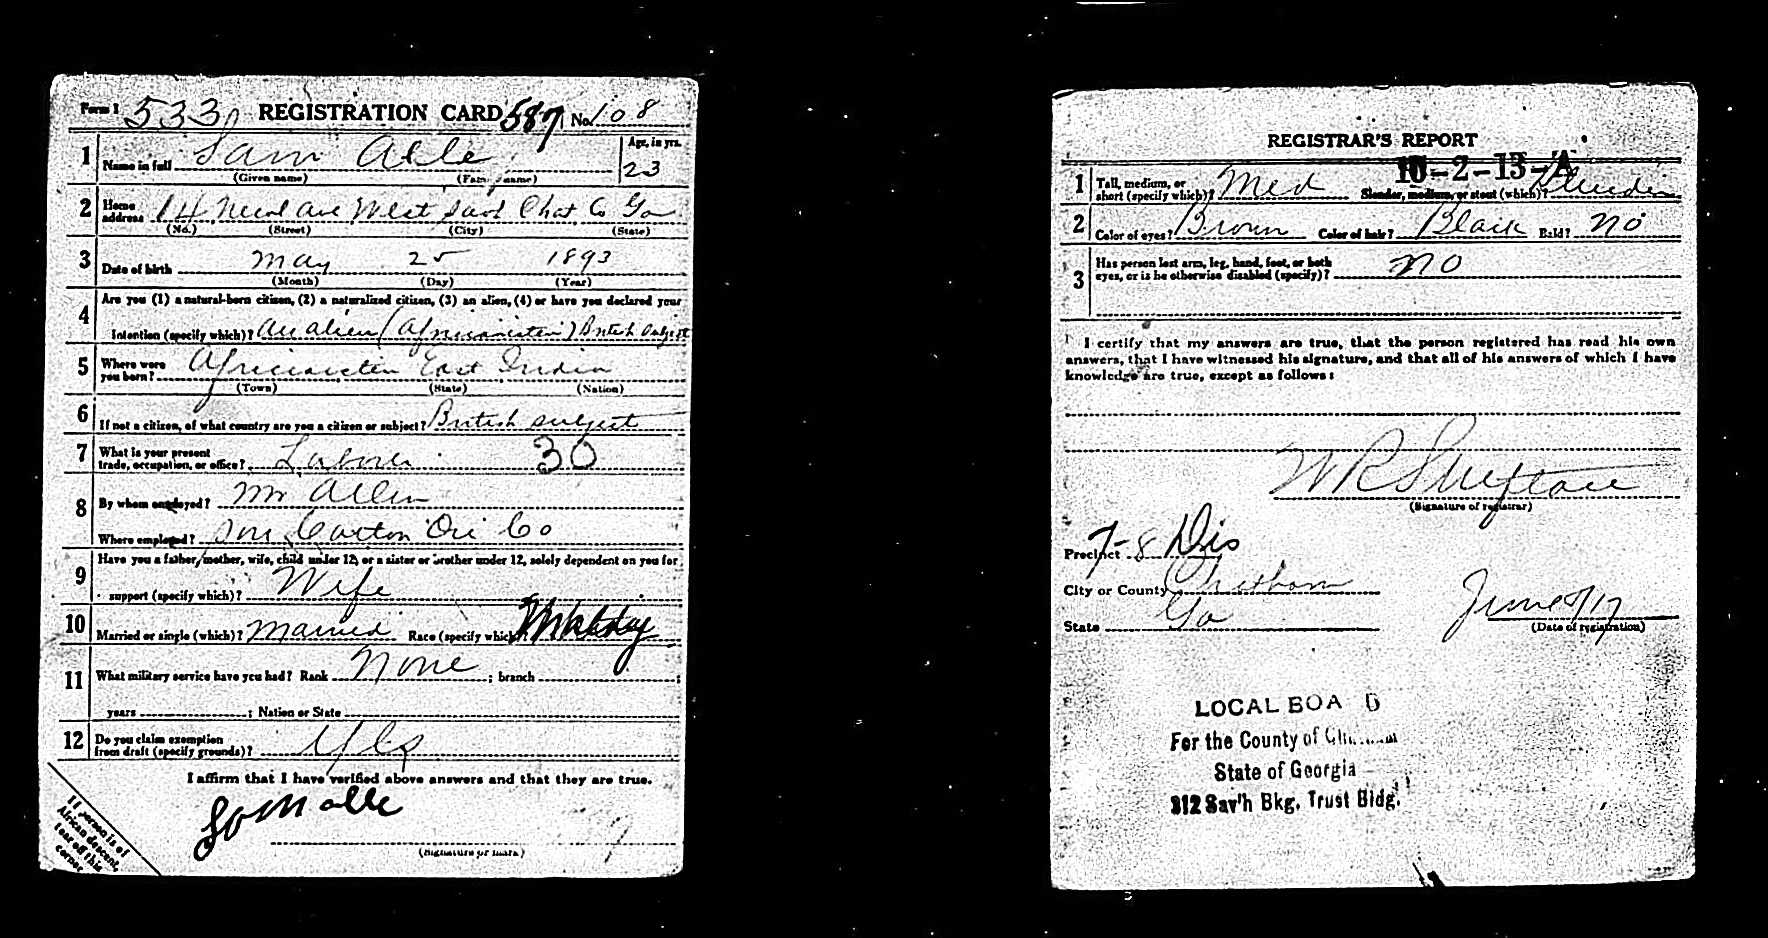 Form 1 533 REGISTRATION CARD 587 No. 108
1 Name in full Sam Alle Age, in yrs. 23
(Given name) (Family name)
2 Home address 14 Ave West Sav Chat Co Ga
(No.) (Street) (City) (State)
3 Date of birth May 25 1893
(Month) (Day) (Year)
4 Are you (1) a natural-born citizen, (2) a naturalized citizen, (3) an alien, (4) or have you declared your
intention (specify which)? An alien (Africanistein) British subject
5 Where were you born? Africanistein East India
(Town) (State) (Nation)
6 If not a citizen, of what country are you a citizen or subject? British subject
7 What is your present trade, occupation, or office? Laborer 30
8 By whom employed? Mr Allen
Where employed? Cotton Oil Co
9 Have you a father, mother, wife, child under 12, or a sister or brother under 12, solely dependent on you for
support (specify which)? Wife
10 Married or single (which)? Married Race (specify which)?
11 What military service have you had? Rank None ; branch ;
years ; Nation or State
12 Do you claim exemption from draft (specify grounds)? Yes
I affirm that I have verified above answers and that they are true.
Sam alle
(Signature or mark)
If person is of
African descent,
tear off this
corner.
REGISTRAR'S REPORT
10-2-13-A
1 Tall, medium, or short (specify which)? Med Slender, medium, or stout (which)? Slender
2 Color of eyes? Brown Color of hair? Black Bald? No
3 Has person lost arm, leg, hand, foot, or both
eyes, or is he otherwise disabled (specify)? No
I certify that my answers are true, that the person registered has read his own
answers, that I have witnessed his signature, and that all of his answers of which I have
knowledge are true, except as follows:
W R
(Signature of registrar)
Precinct 7-8 Dis
City or County Chatham
State Ga June 5/17
(Date of registration)
LOCAL BOA D
For the County of Chatham
State of Georgia
312 Sav'h Bkg. Trust Bldg.